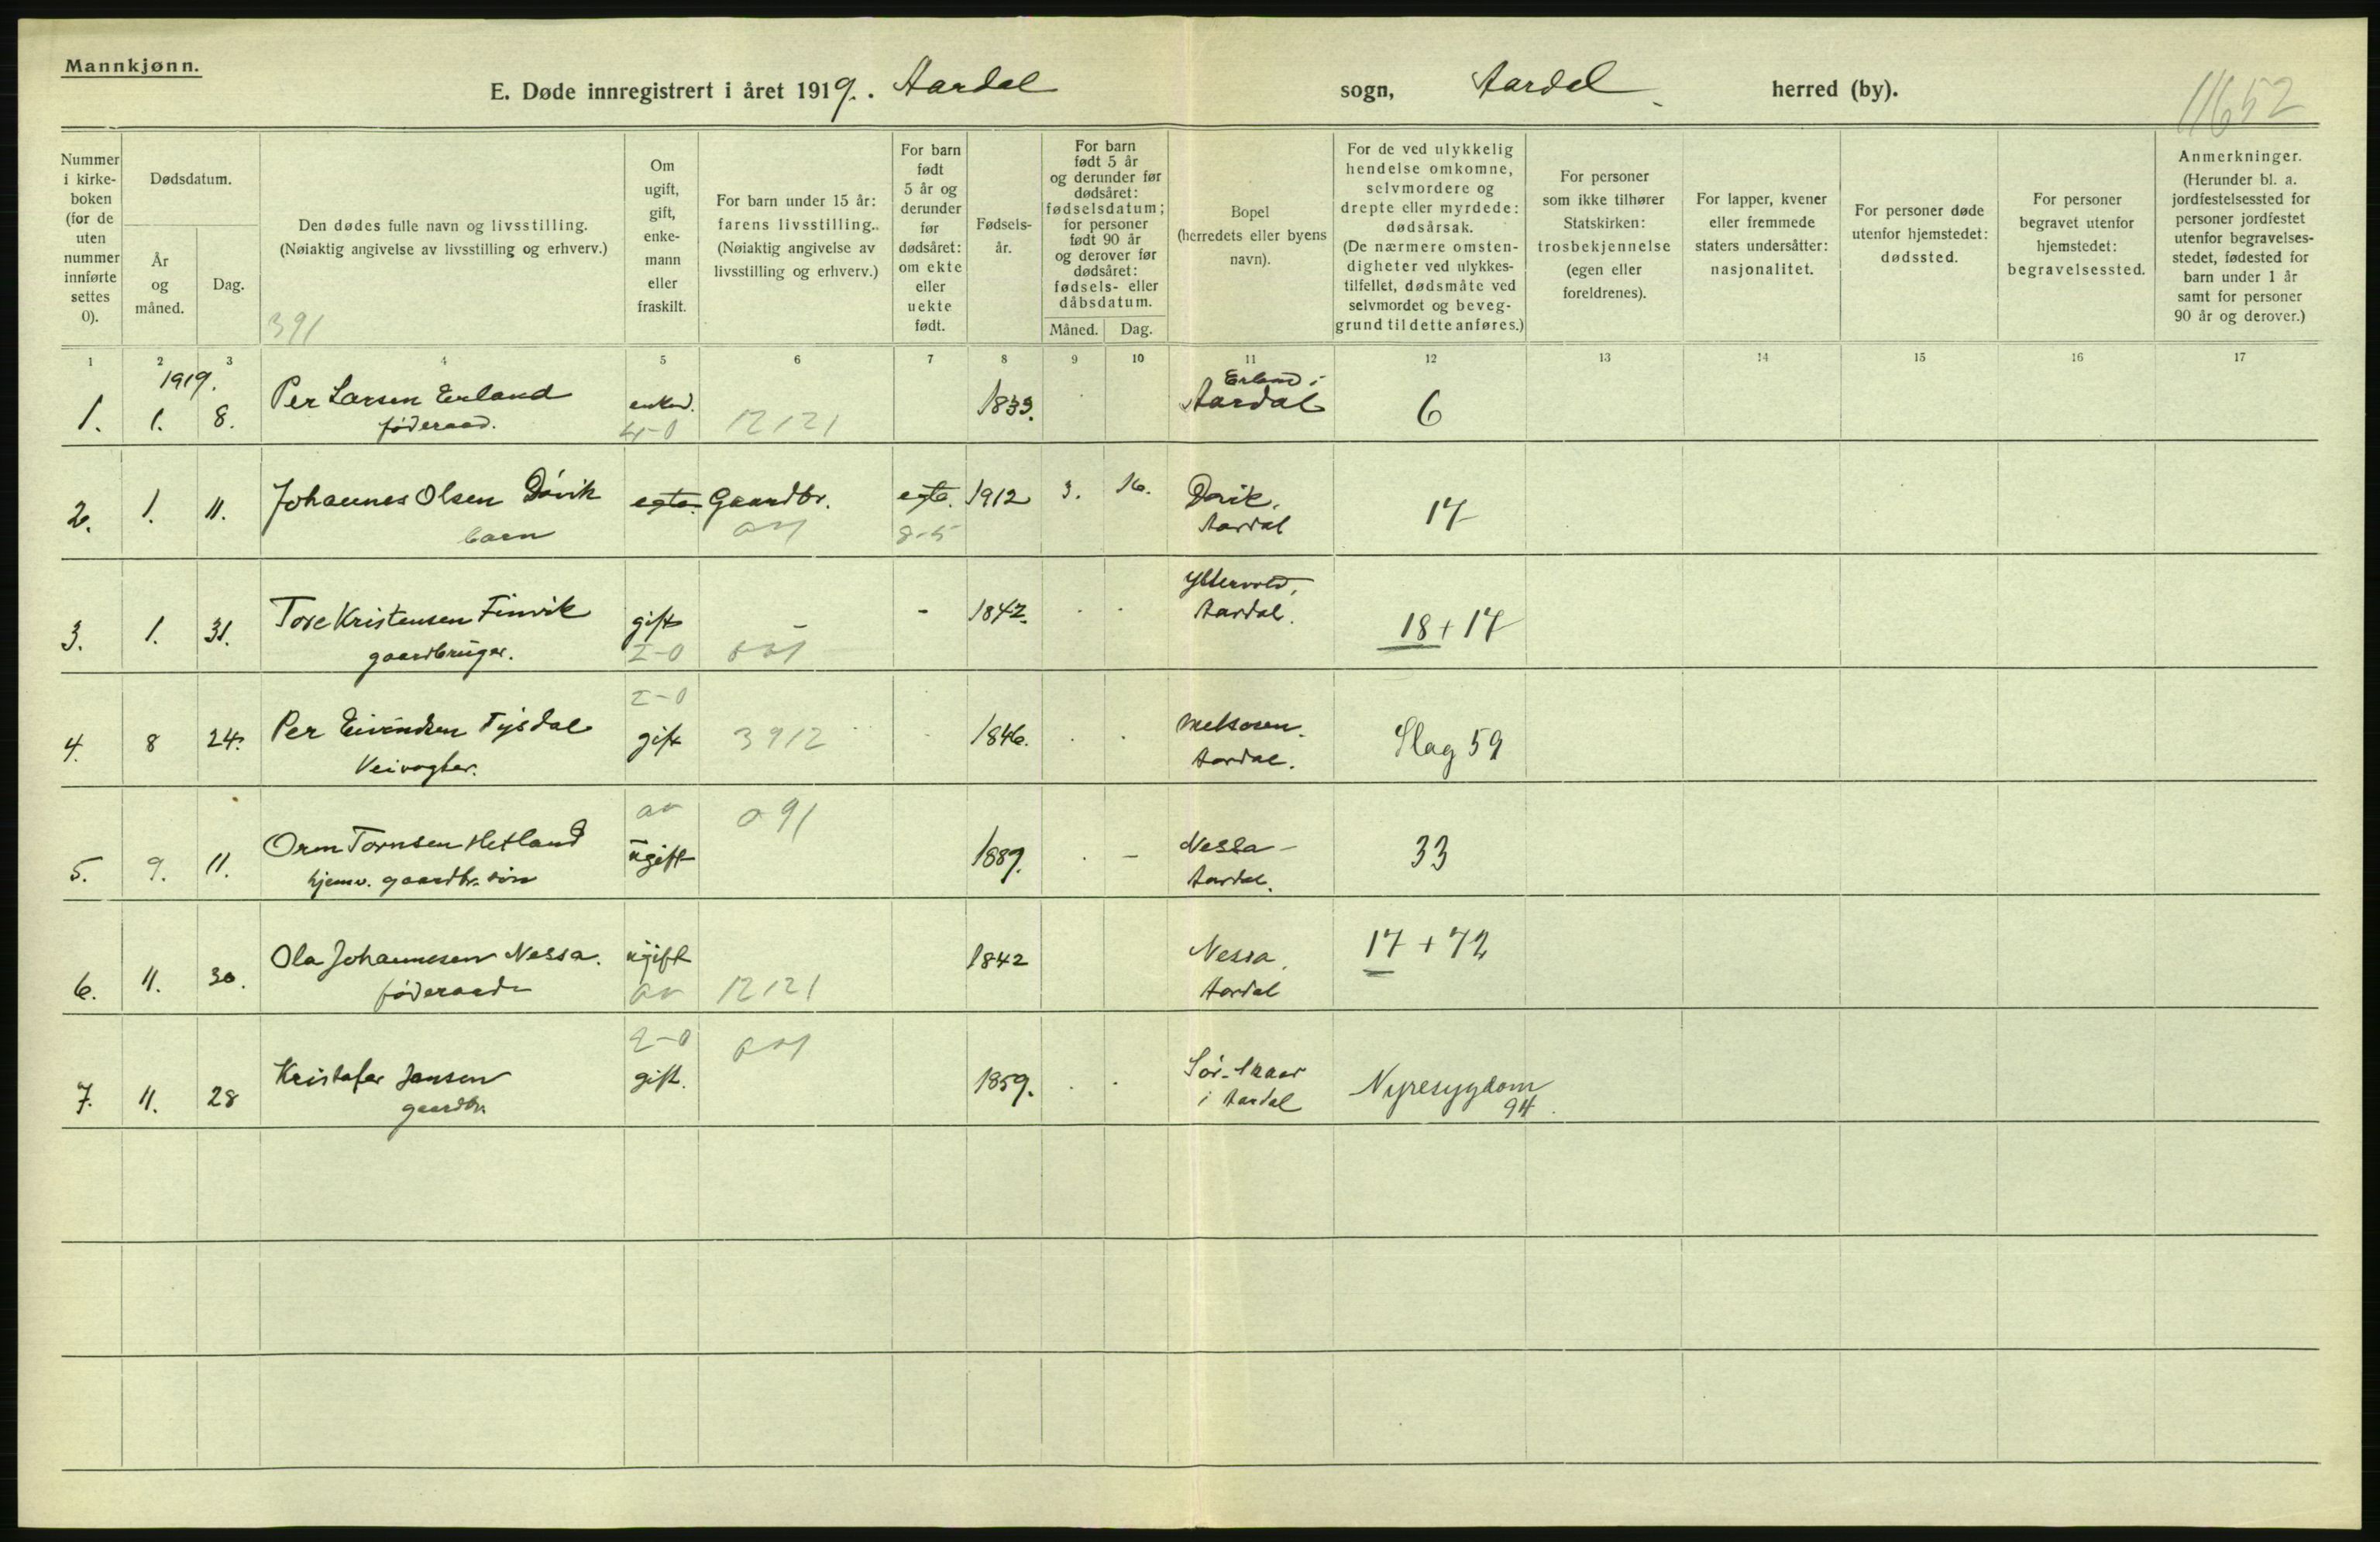 Mannkjønn.
E. Døde innregistrert i året 1919. Aardal sogn, Aardal herred (by).
11652
Nummer i kirke-boken (for de uten nummer innførte settes 0).
Dødsdatum.
År og måned.
Dag.
Den dødes fulle navn og livsstilling.
(Nøiaktig angivelse av livsstilling og erhverv.)
391
Om ugift, gift, enke-mann eller fraskilt.
For barn under 15 år: farens livsstilling..
(Nøiaktig angivelse av livsstilling og erhverv.)
For barn født 5 år og derunder før dødsåret: om ekte eller uekte født.
Fødsels-år.
For barn født 5 år og derunder før dødsåret: fødselsdatum; for personer født 90 år og derover før dødsåret: fødsels- eller dåbsdatum.
Måned. Dag.
Bopel (herredets eller byens navn).
For de ved ulykkelig hendelse omkomne, selvmordere og drepte eller myrdede: dødsårsak.
(De nærmere omsten-digheter ved ulykkes-tilfellet, dødsmåte ved selvmordet og beveg-grund til dette anføres.)
For personer som ikke tilhører Statskirken: trosbekjennelse (egen eller foreldrenes).
For lapper, kvener eller fremmede staters undersåtter: nasjonalitet.
For personer døde utenfor hjemstedet: dødssted.
For personer begravet utenfor hjemstedet: begravelsessted.
Anmerkninger.
(Herunder bl. a. jordfestelsessted for personer jordfestet utenfor begravelses-stedet, fødested for barn under 1 år samt for personer 90 år og derover.)
1 2 3 4 5 6 7 8 9 10 11 12 13 14 15 16 17
1919.
1. 1. 8. Per Larsen Erland enkem. 1839. Erland i Aardal 6
føderaad. 12121
2. 1. 11. Johannes Olsen Dövik egte. Gaardbr. egte. 1912 3. 16. Dövik, Aardal 17
barn
3. 1. 31. Tore Kristensen Finvik gift - - 1842. Aardal. 18 + 17
gaardbruger. I-0
I-0
4. 8 24. Per Eivindsen Tysdal gift 3912 1846. Aardal. Slag 59
Veivogter.
091
5. 9. 11. Orm Tornsen Hetland ugift 1889. - Nessa - Aardal. 33
hjemv. gaardbr. søn
6. 11. 30. Ola Johannesen Nessa. ugift 1842 Nessa, Aardal 17 + 72
føderaad 12121
2-0
7. 11. 28 Kristofer Jansen gift. 1859. Sör-Skaar i Aardal Nyresygdom 94.
gaardbr.